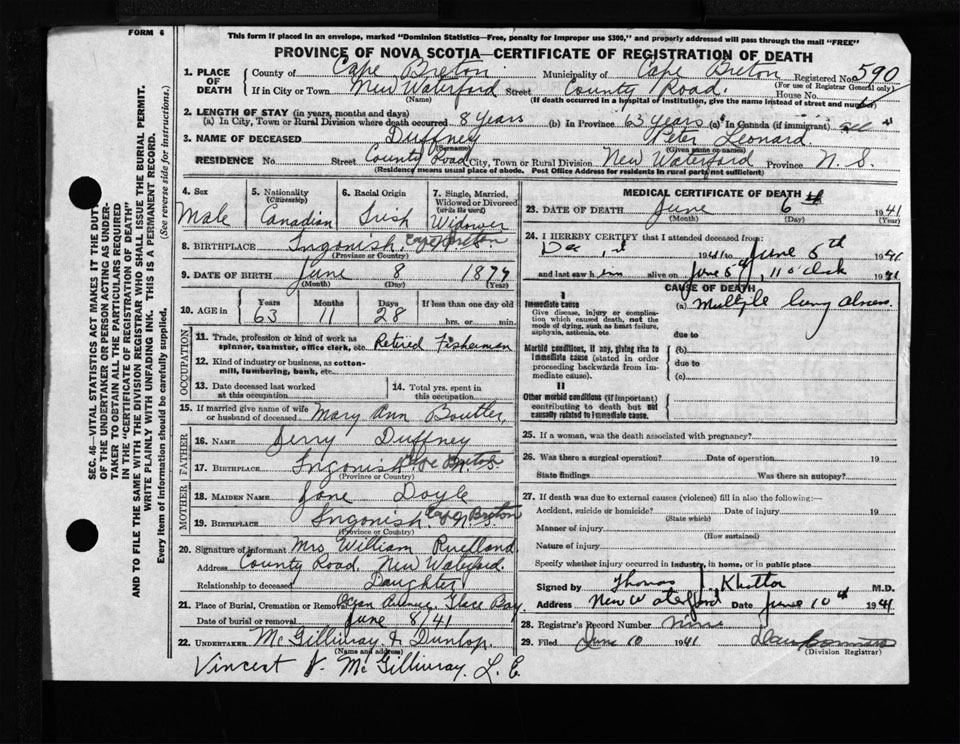 FORM 6
This form if placed in an envelope, marked "Dominion Statistics—Free, penalty for improper use $300," and properly addressed will pass through the mail "FREE"
PROVINCE OF NOVA SCOTIA—CERTIFICATE OF REGISTRATION OF DEATH
SEC. 46—VITAL STATISTICS ACT MAKES IT THE DUTY
OF THE UNDERTAKER OR PERSON ACTING AS UNDER-
TAKER TO OBTAIN ALL THE PARTICULARS REQUIRED
IN THE "CERTIFICATE OF REGISTRATION OF DEATH"
AND TO FILE THE SAME WITH THE DIVISION REGISTRAR WHO SHALL ISSUE THE BURIAL PERMIT.
WRITE PLAINLY WITH UNFADING INK. THIS IS A PERMANENT RECORD.
Every item of information should be carefully supplied. (See reverse side for instructions.)
1. PLACE OF DEATH County of Cape Breton Municipality of Cape Breton Registered No. 590
(For use of Registrar General only)
If in City or Town New Waterford Street County Road House No.
(Name) (If death occurred in a hospital of institution, give the name instead of street and number)
2. LENGTH OF STAY (in years, months and days)
(a) In City, Town or Rural Division where death occurred 8 years (b) In Province 63 years (c) In Canada (if immigrant)
3. NAME OF DECEASED Duffney Peter Leonard
(Surname) (Given name or names)
RESIDENCE No. Street County Road City, Town or Rural Division New Waterford Province N. S.
(Residence means usual place of abode. Post Office Address for residents in rural parts not sufficient)
4. Sex Male
5. Nationality (Citizenship) Canadian
6. Racial Origin Irish
7. Single, Married, Widowed or Divorced (write the word) Widower
8. BIRTHPLACE Ingonish, Cape Breton
(Province or Country)
9. DATE OF BIRTH June 8 1877
(Month) (Day) (Year)
10. AGE in Years 63 Months 11 Days 28 If less than one day old hrs. or min.
OCCUPATION
11. Trade, profession or kind of work as spinner, teamster, office clerk, etc. Retired Fisherman
12. Kind of industry or business, as cotton-mill, lumbering, bank, etc.
13. Date deceased last worked at this occupation
14. Total yrs. spent in this occupation
15. If married give name of wife or husband of deceased Mary Ann Boutler
FATHER
16. NAME Jerry Duffney
17. BIRTHPLACE Ingonish Cape Breton
(Province or Country)
MOTHER
18. MAIDEN NAME Jane Doyle
19. BIRTHPLACE Ingonish Cape Breton
(Province or Country)
20. Signature of informant Mrs William Ruelland
Address County Road New Waterford
Relationship to deceased Daughter
21. Place of Burial, Cremation or Removal Ocean Avenue, Glace Bay
Date of burial or removal June 8/41
22. UNDERTAKER McGillivray & Dunlop
(Name and address)
Vincent J. McGillivray. L. E.
MEDICAL CERTIFICATE OF DEATH
23. DATE OF DEATH June 6 th 1941
(Month) (Day)
24. I HEREBY CERTIFY that I attended deceased from:
Dec 1941 to June 5th 1941
and last saw him alive on June 5th, 11 o'clock 1941
CAUSE OF DEATH
I
Immediate cause
Give disease, injury or complication which caused death, not the mode of dying, such as heart failure, asphyxia, asthenia, etc.
(a) Multiple lung abscess.
due to
Morbid conditions, if any, giving rise to immediate cause (stated in order proceeding backwards from immediate cause).
(b)
due to
(c)
II
Other morbid conditions (if important) contributing to death but not causally related to immediate cause.
25. If a woman, was the death associated with pregnancy?
26. Was there a surgical operation? Date of operation 19
State findings Was there an autopsy?
27. If death was due to external causes (violence) fill in also the following:—
Accident, suicide or homicide? Date of injury 19
(State which)
Manner of injury
(How sustained)
Nature of injury
Specify whether injury occurred in industry, in home, or in public place
Signed by Thomas M.D.
Address New Waterford Date June 10th 1941
28. Registrar's Record Number
29. Filed June 10 1941
(Division Registrar)